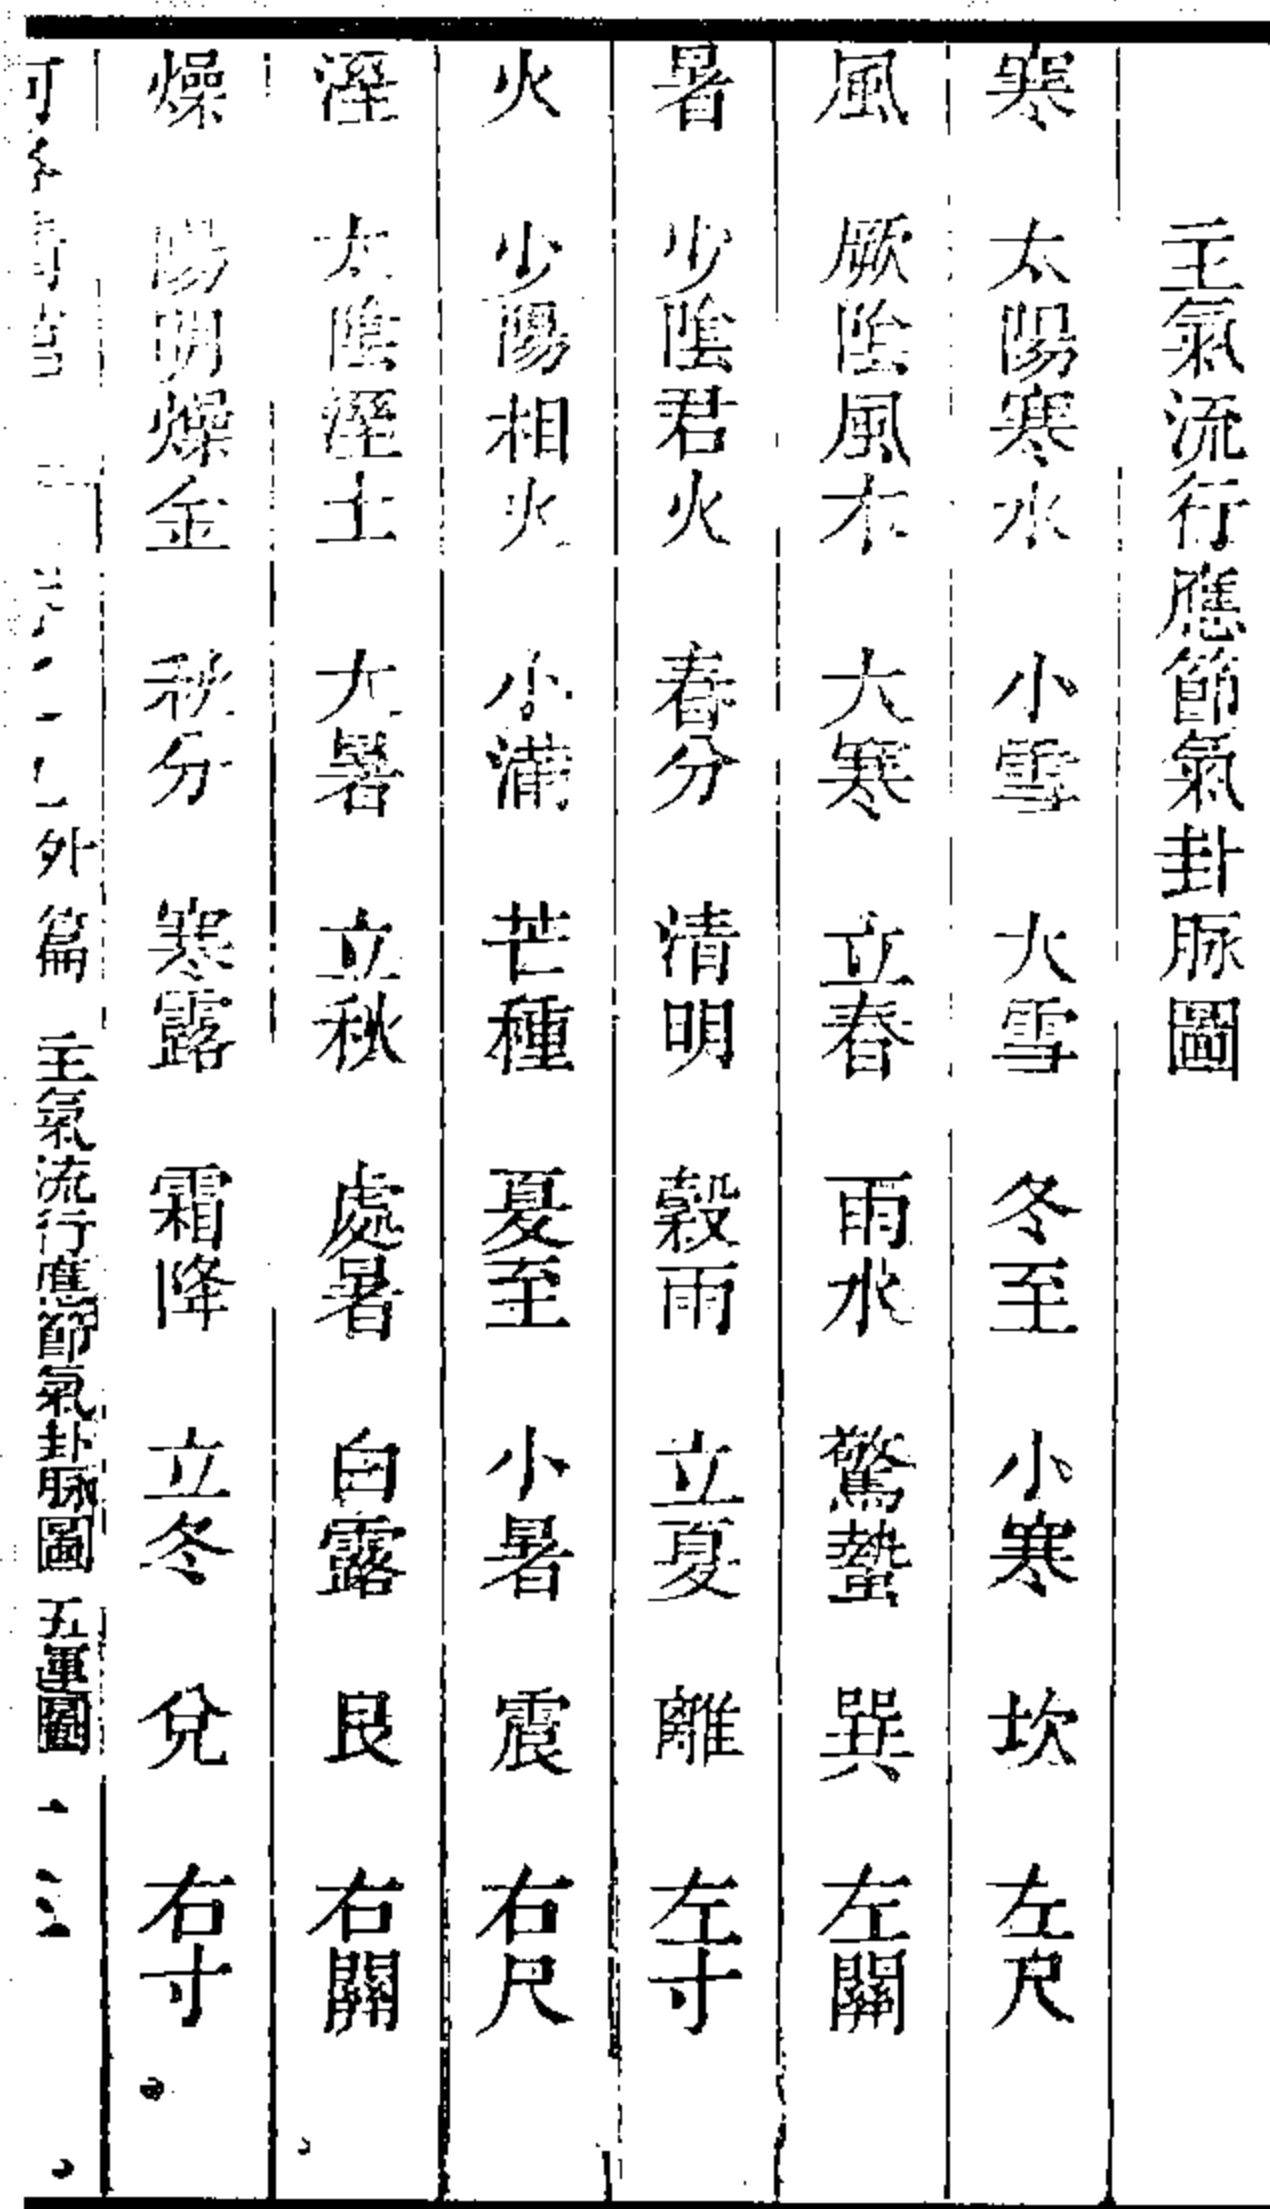 主氣流行應節氣卦脉圖
寒 太陽寒水 小雪 大雪 冬至 小寒 坎 左尺
風 厥陰風木 大寒 立春 雨水 驚蟄 巽 左關
暑 少陰君火 春分 清明 穀雨 立夏 離 左寸
火 少陽相火 小滿 芒種 夏至 小暑 震 右尺
溼 太陰溼土 大暑 立秋 處暑 白露 艮 右關
燥 陽明燥金 秋分 寒露 霜降 立冬 兌 右寸
外篇 主氣流行應節氣卦脉圖 五運圖